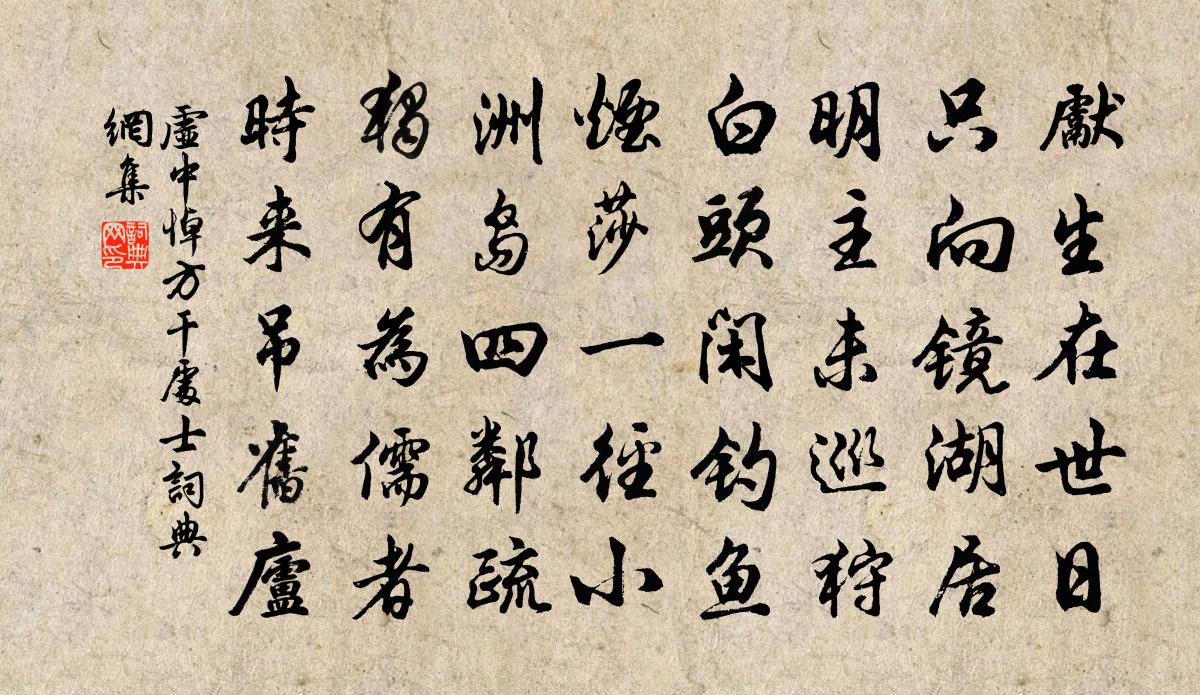 獻生在世日
只向鏡湖居
明主未巡狩
白頭閑釣鱼
煙莎一徑小
洲島四鄰疏
獨有為儒者
時来吊舊廬
虛中悼方干處士詞典
網集
詞典
网印